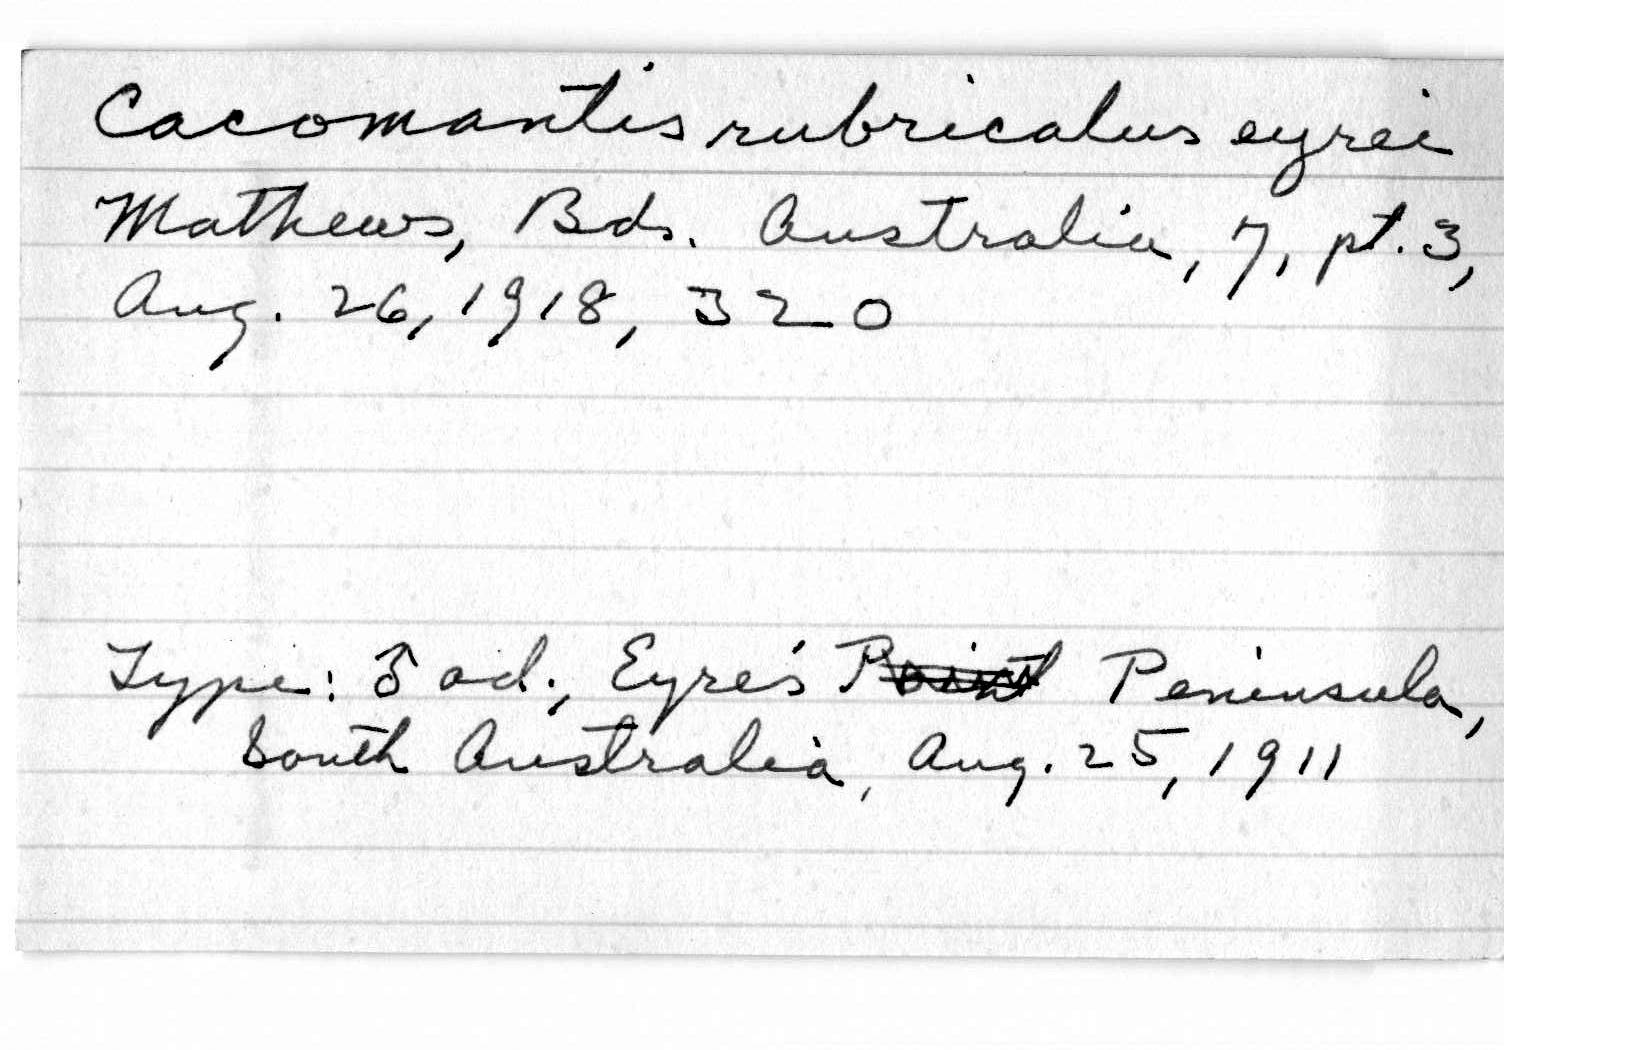 Cacomantis rubricatus eyrei
Mathews, Bds. Australia, 7, pt. 3,
Aug. 26, 1918, 320
Type: ♂ ad., Eyre's Point Peninsula,
South Australia, Aug. 25, 1911